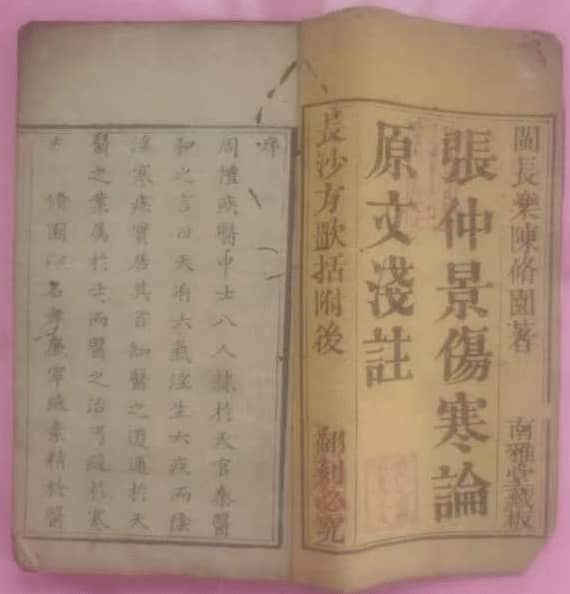 閩長樂陳脩園著 南雅堂藏板
張仲景傷寒論
原文淺註
長沙方歌括附後 翻刻必究
周禮疾醫中士八人隸於天官秦醫
和之言曰天有六氣淫生六疾而陰
淫寒疾實居其首知醫之道通於天
醫之業属於士而醫之治於寒
脩園以名孝廉宰素精於醫